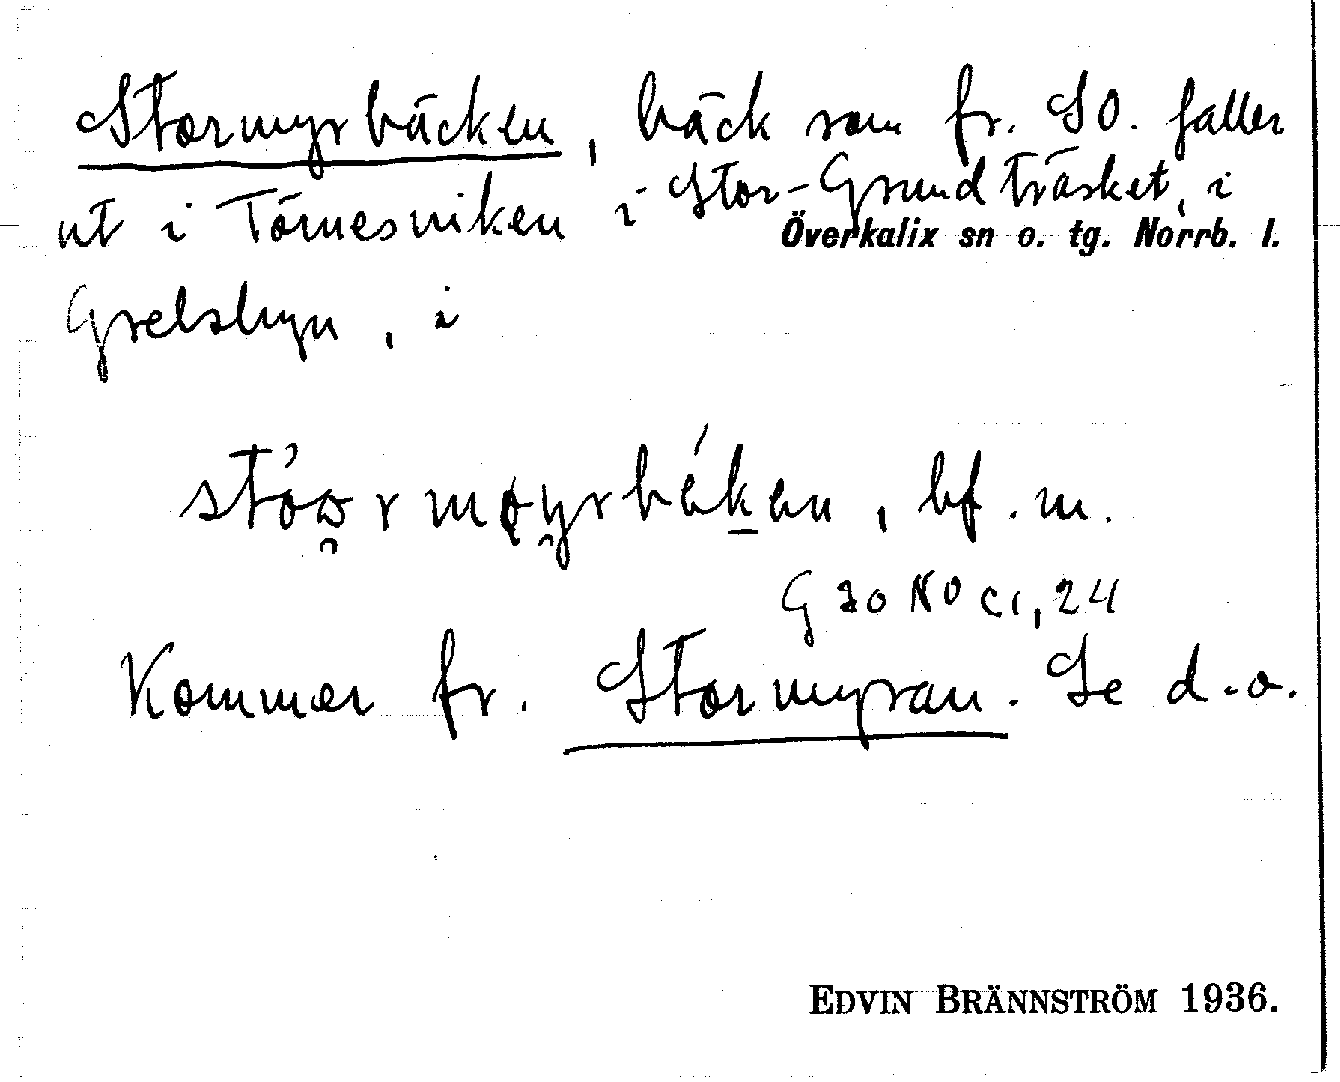 Stormyrbäcken, bäck som fr. SO. faller
ut i Törnesviken i Stor-Grundträsket, i
Överkalix sn o. tg. Norrb. l.
Grelsbyn, i
bf. m.
G 30 NO c1, 24
Kommer fr. Stormyran. Se d.o.
EDVIN BRÄNNSTRÖM 1936.